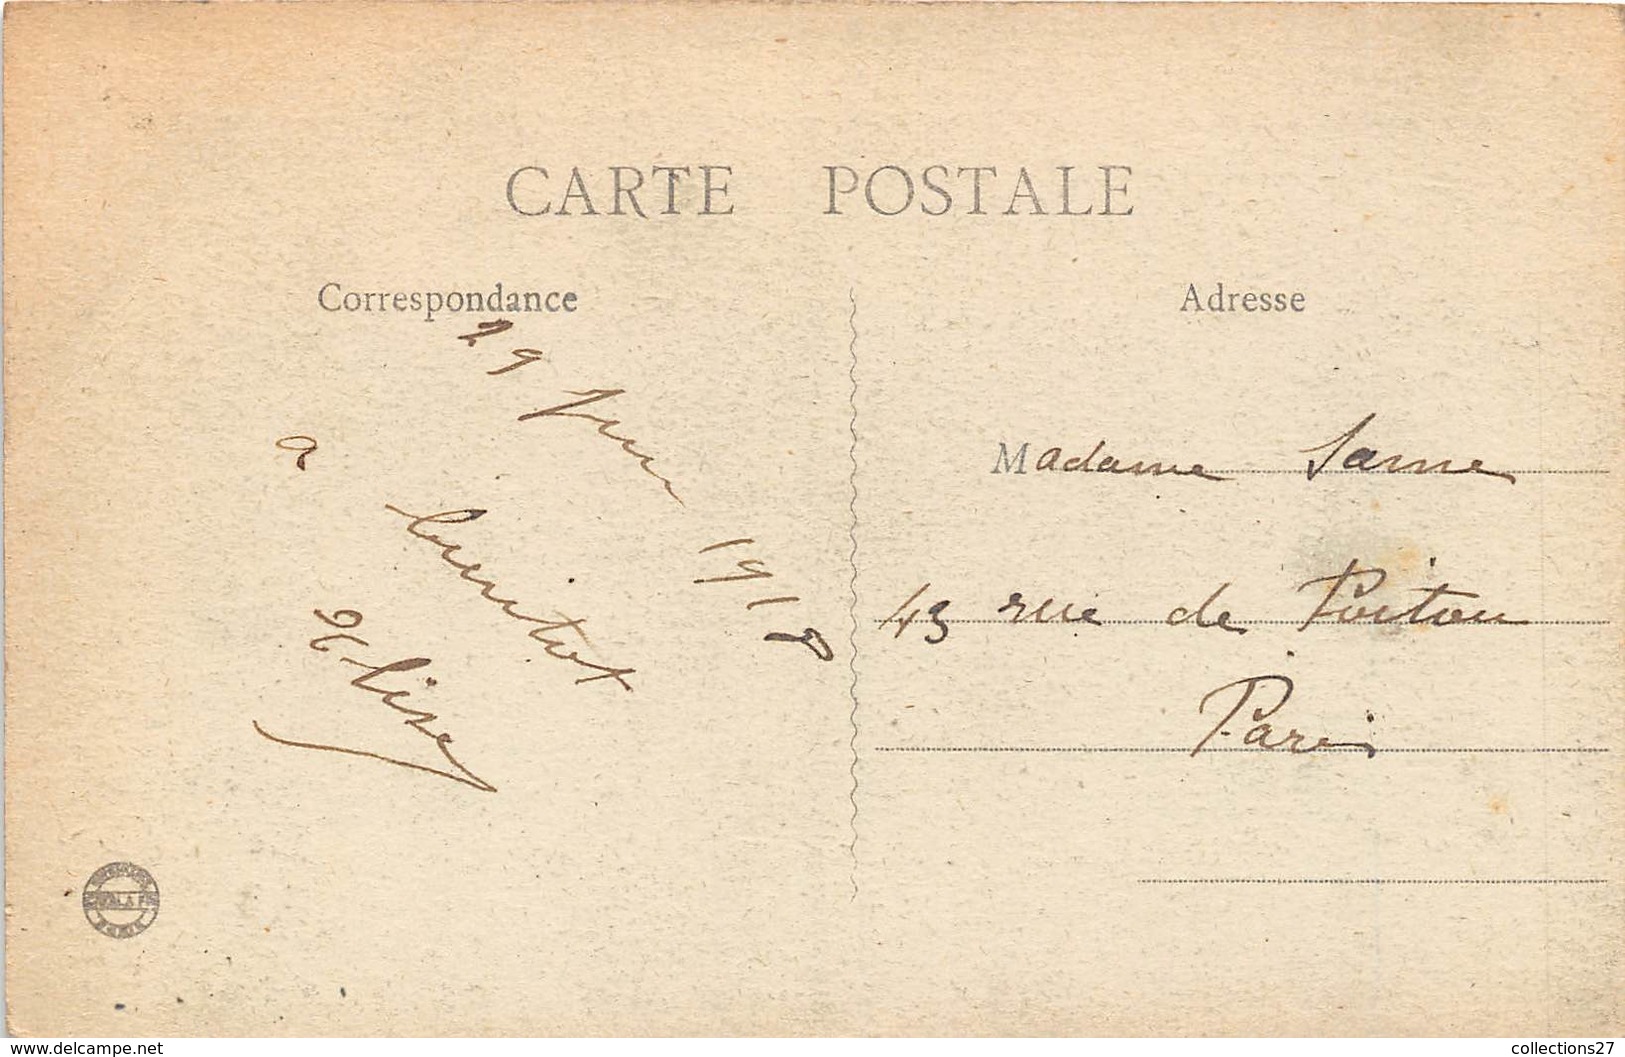 CARTE POSTALE
Correspondance
29 Juin 1918
a
Adresse
Madame
43 rue de Poitou
Paris
www.delcampe.net
collections27